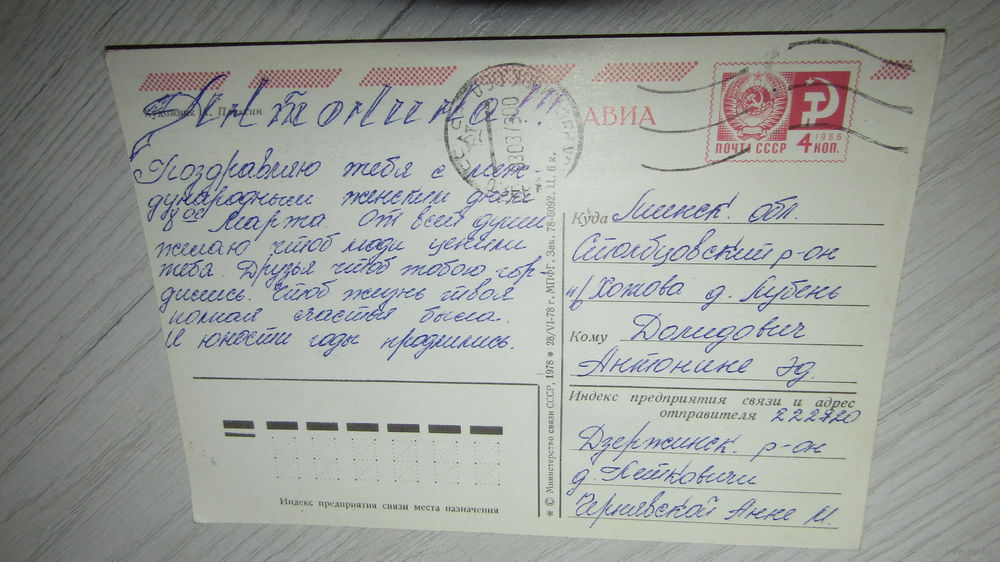 Антонина!!!
Поздравляю тебя с меж-
дународным женским днем
8ое Марта. От всей души
желаю чтоб люди ценили
тебя. Друзья чтоб тобою гор-
дились. Чтоб жизнь твоя
полная счастья была.
И юности годы продлились.
Индекс предприятия связи места назначения
* © Министерство связи СССР, 1978 * 28/VI-78 г. МПФГ. Зак. 78-6092. Ц. 6 к.
АВИА
ПОЧТА СССР
1966
4 КОП.
Куда Минск. обл.
Столбцовский р-он
п/ Хотова д. Лубень
Кому Домидович
Антонине Эд.
Индекс предприятия связи и адрес
отправителя 222720
Дзержинск. р-он
д. Петковичи
Чернявской Анне И.